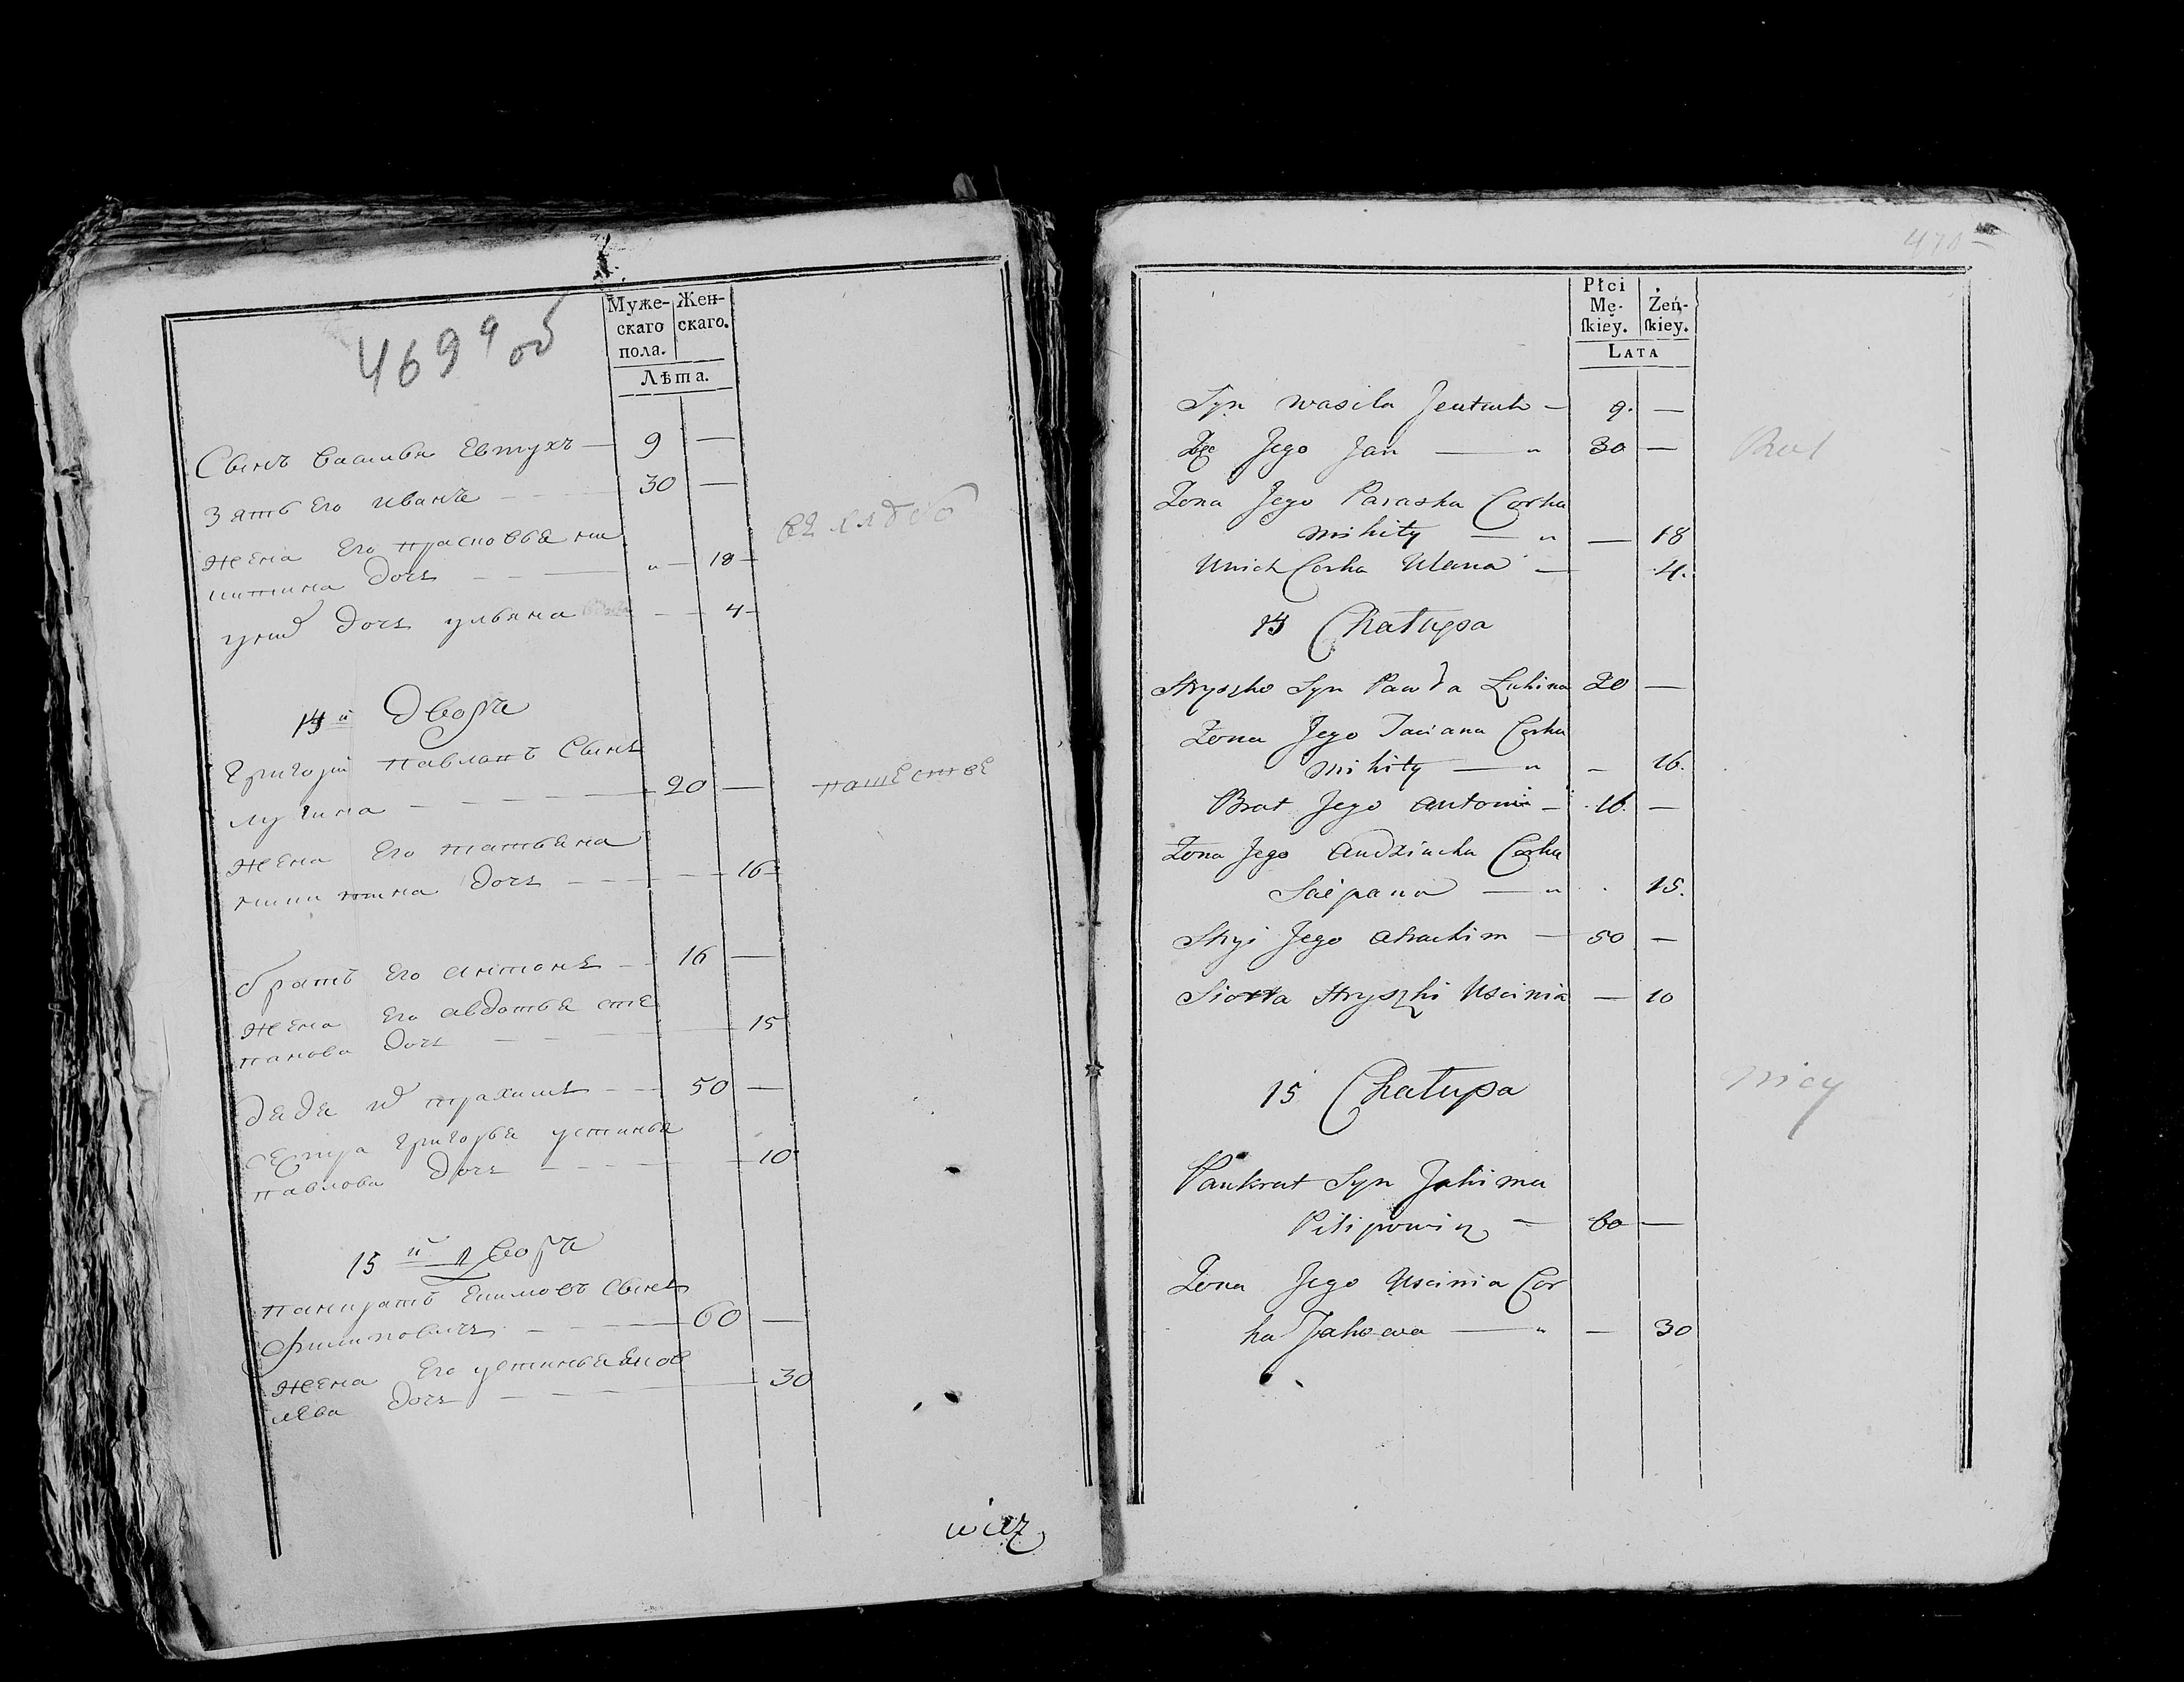 469 об
Муже- Жен-
скаго скаго.
пола.
Лѣта.
Сынъ василья Евтухъ — 9 —
зять Его иванъ — 30 —
жена Его прасковья ни
китина дочь — „ — 18 —
дочь ульяна — 4 —
14й Дворъ
Григорій павловъ Сынъ
лугина — 20 —
жена Его татьяна
микитина дочь — 16
братъ Его антонъ — 16 —
жена Его авдотья сте
панова дочь — 15
дядя трахимъ — 50 —
сестра григорья устинья
павлова дочь — 10
15й дворъ
панкратъ Екимовъ Сынъ
филиповичъ — 60 —
жена Его устинья яков
лева дочь — 30
470
Płci
Mę- Żeń-
ſkiey. ſkiey.
LATA
Syn wasila Jeutuch — 9. —
Zięć Jego Jan — „ 30 —
Zona Jego Paraska Corka
mikity — „ — 18
Corka Ulana — 4.
14 Chałupa
Hryszko Syn Pawła Łuhina 20 —
Zona Jego Taciana Corka
mikity — „ — 16.
Brat Jego Antoni — 16. —
Zona Jego Audziucha Corka
Sciepana — „ 15.
Stryi Jego Atrachim — 50 —
Siostra Hryszki Uscinia — 10
15 Chałupa
Pankrat Syn Jakima
Pilipowicz — 60 —
Zona Jego Uscinia Cor
ka Jakowa — „ — 30